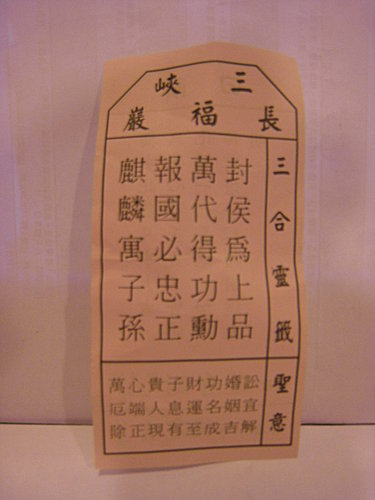 三峽
長福巖
三合靈籤
封侯爲上品
萬代得功勳
報國必忠正
麒麟寓子孫
聖意
訟宜解
婚姻吉
功名成
財運至
子息有
貴人現
心端正
萬厄除